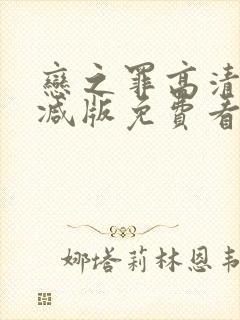 戀之罪高清
減版免費看
娜塔莉林恩韦